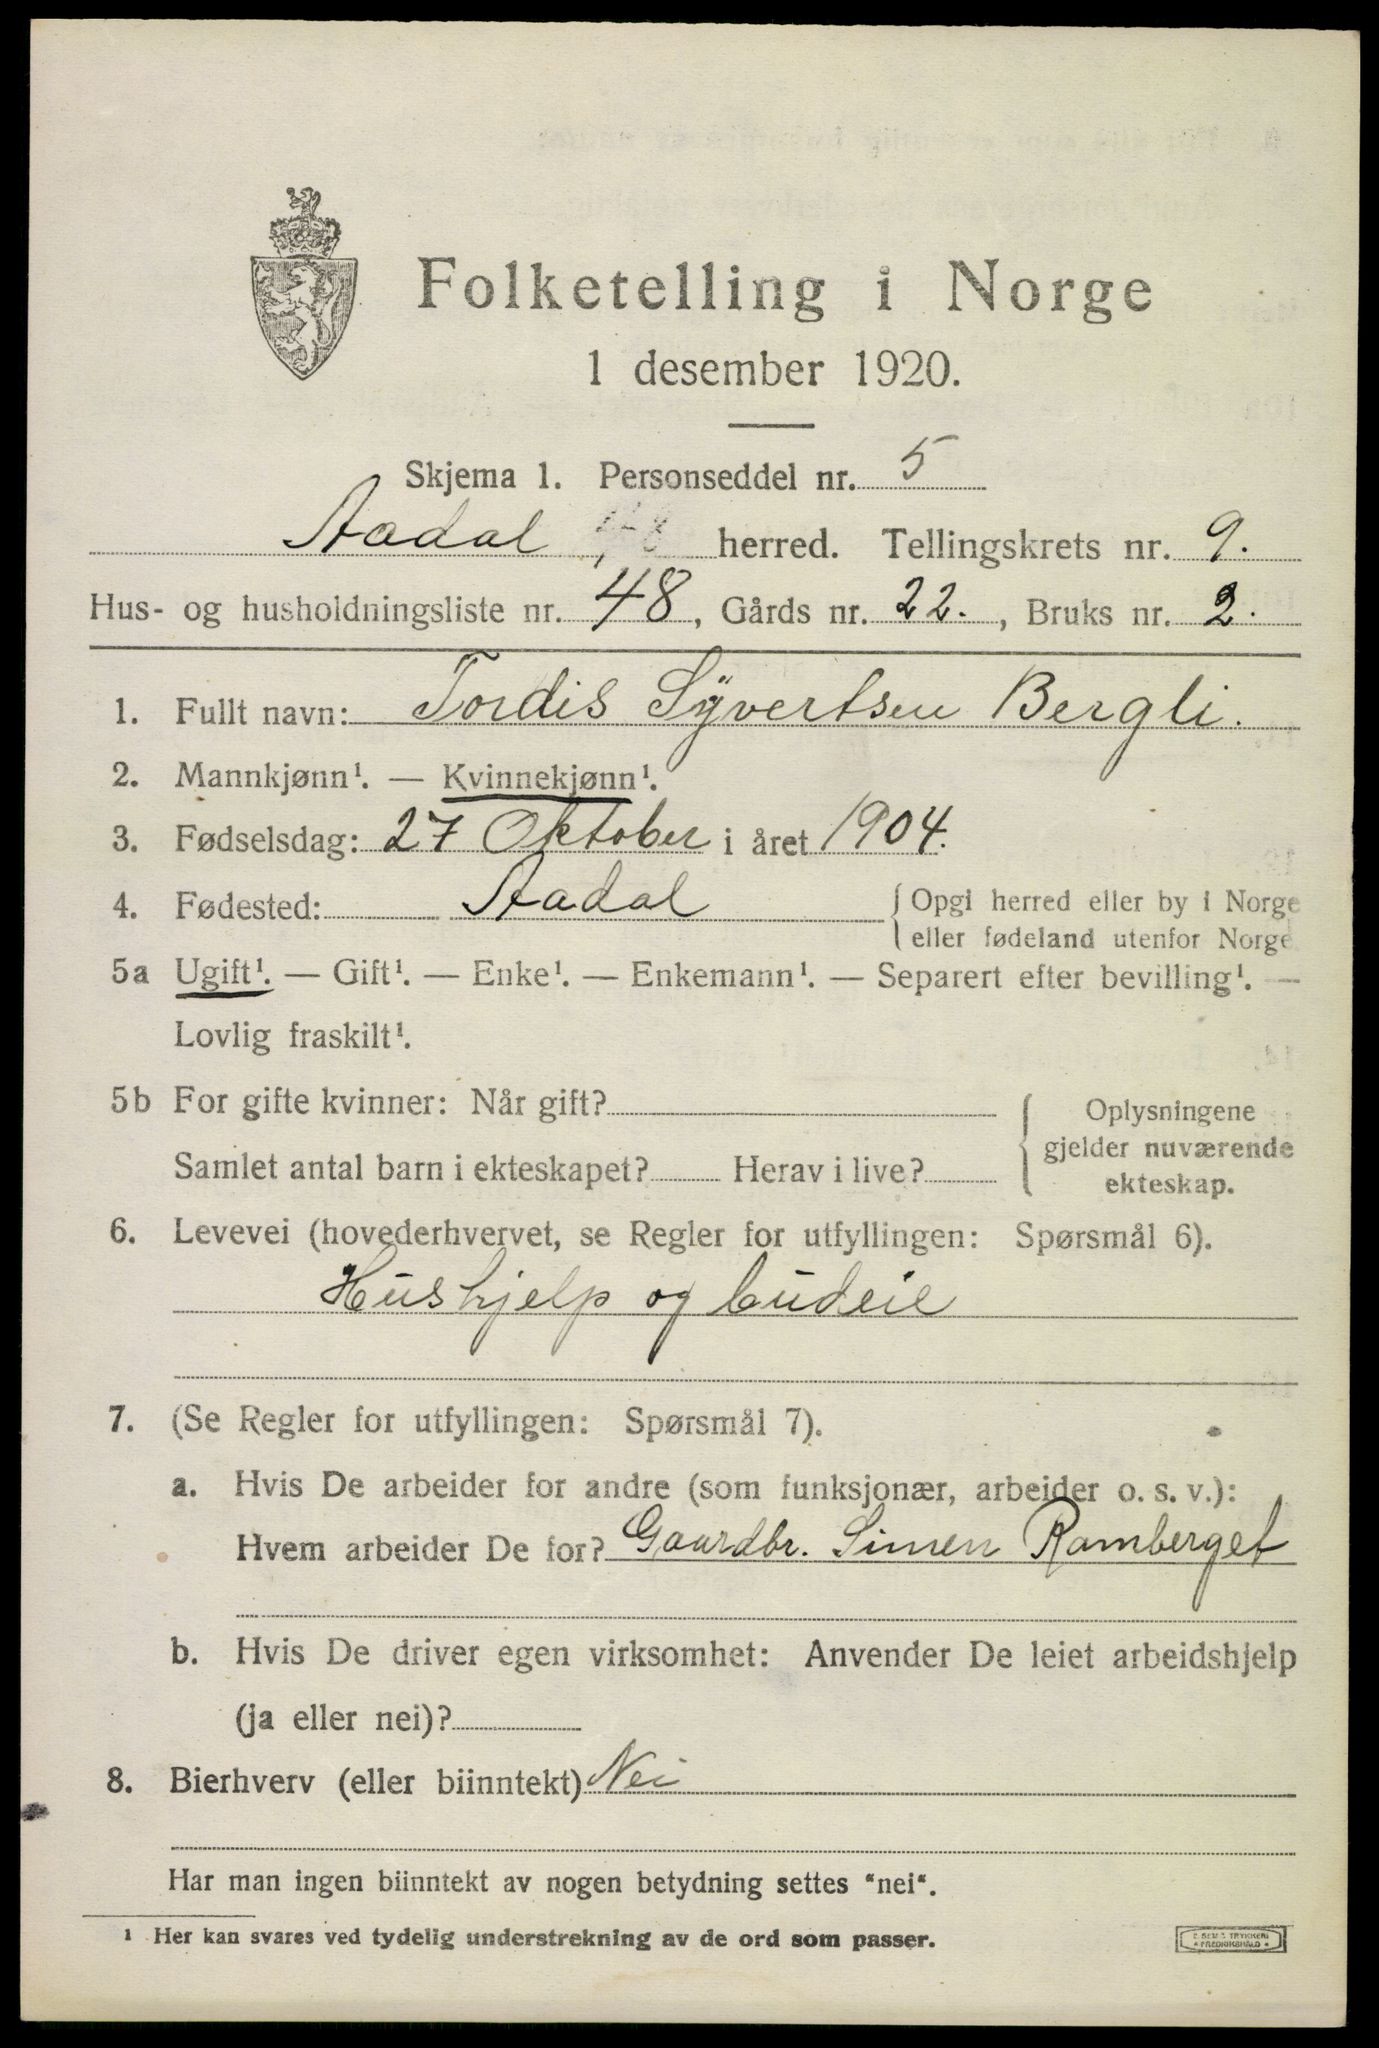 Folketelling i Norge
1 desember 1920.
Skjema 1. Personseddel nr. 5
Aadal herred. Tellingskrets nr. 9.
Hus- og husholdningsliste nr. 48, Gårds nr. 22., Bruks nr. 2.
1. Fullt navn: Tordis Syvertsen Bergli.
2. Mannkjønn¹. — Kvinnekjønn¹.
3. Fødselsdag: 27 Oktober i året 1904.
4. Fødested: Aadal { Opgi herred eller by i Norge
eller fødeland utenfor Norge
5a Ugift¹. — Gift¹. — Enke¹. — Enkemann¹. — Separert efter bevilling¹. —
Lovlig fraskilt¹.
5b For gifte kvinner: Når gift?
Samlet antal barn i ekteskapet? Herav i live?
{ Oplysningene
gjelder nuværende
ekteskap.
6. Levevei (hovederhvervet, se Regler for utfyllingen: Spørsmål 6).
Hushjelp og budeie
7. (Se Regler for utfyllingen: Spørsmål 7).
a. Hvis De arbeider for andre (som funksjonær, arbeider o. s. v.):
Hvem arbeider De for? Gaardbr. Simen Ramberget
b. Hvis De driver egen virksomhet: Anvender De leiet arbeidshjelp
(ja eller nei)?
8. Bierhverv (eller biinntekt) Nei
Har man ingen biinntekt av nogen betydning settes "nei".
¹ Her kan svares ved tydelig understrekning av de ord som passer.